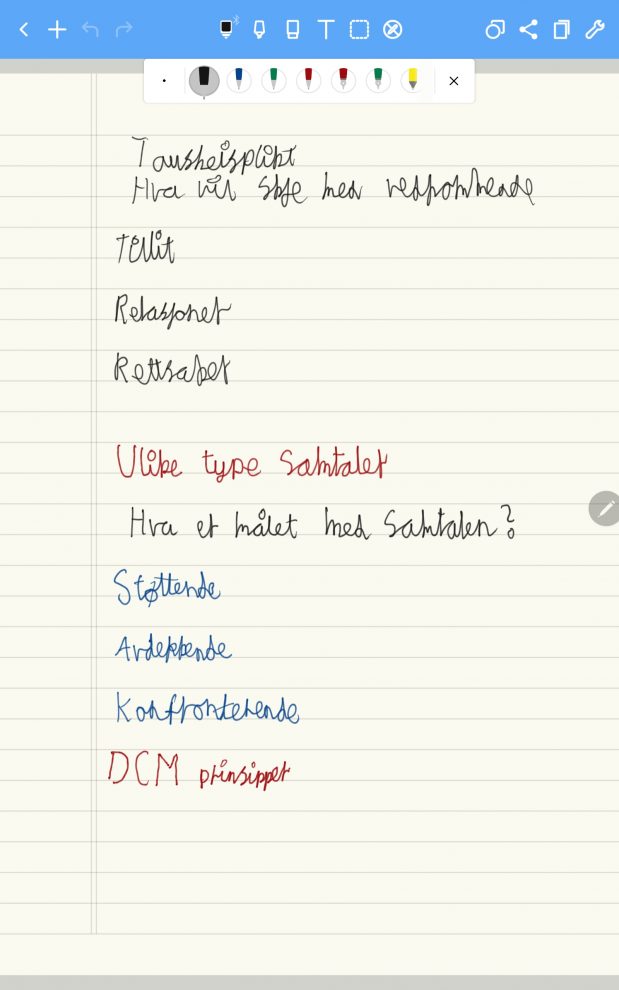 Tausheisplikt
Hva vil skje med vedkommende
Tillit
Relasjoner
Rettsaket
Ulike type Samtaler
Hva er målet med Samtalen?
Støttende
Avdekkende
Konfronterende
DCM prinsippet